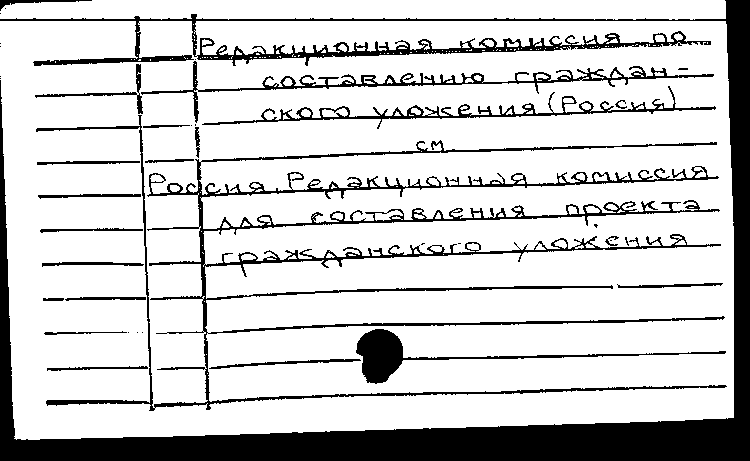 Редакционная комиссия по
составлению граждан-
ского уложения (Россия)
см.
Россия. Редакционная комиссия
для составления проекта
гражданского уложения